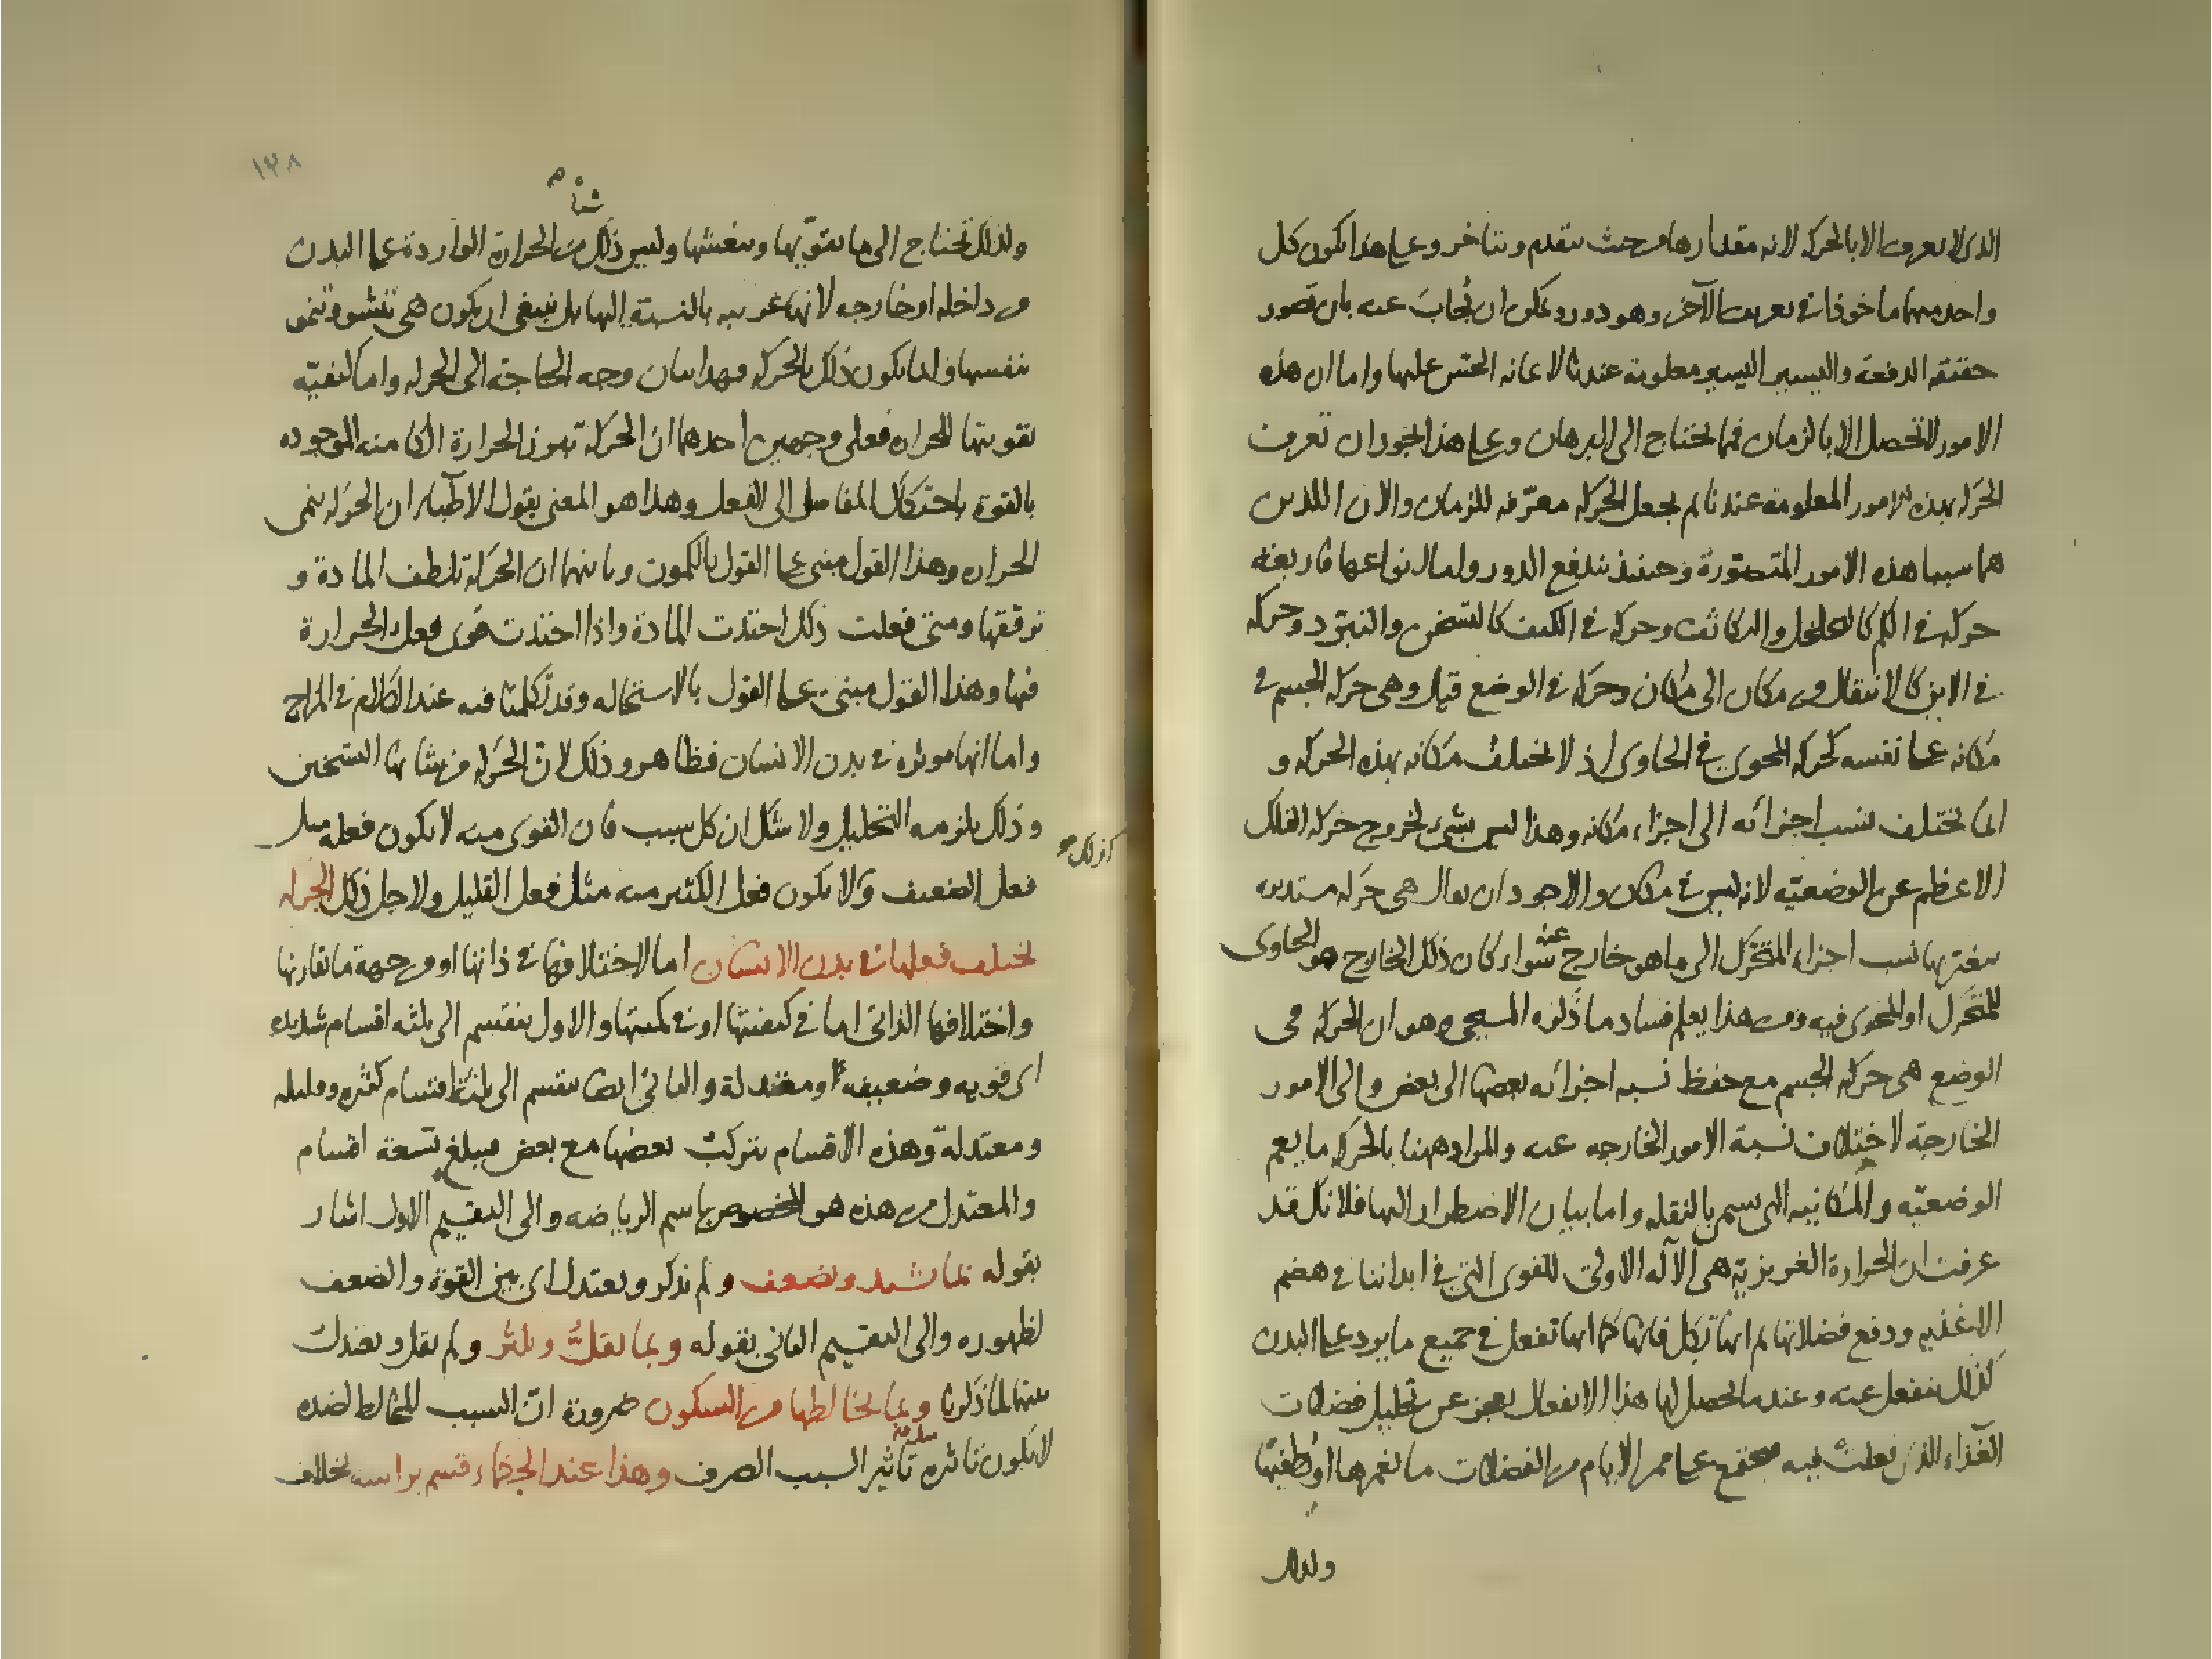 الذى لا يعرف الا بالحركة لانه مقدارها من حيث يتقدم ويتاخر وعلى هذا يكون كل
واحد منهما ماخوذا فى تعريف الآخر وهو دور ويمكن ان يُجابَ عنه بان تصور
حقيقة الدفعة واليسير اليسير معلومة عندنا لاعانة الحسّ عليها واما ان هذه
الامور لا تحصل الا بالزمان فمما يحتاج الى البرهان وعلى هذا يجوز ان تعرف
الحركة بهذه الامور المعلومة عندنا ثم يجعل الحركة معرّفة للزمان والان اللذين
هما سببا هذه الامور المتصوّرة وحينئذ يندفع الدور واما انواعها فاربعة
حركة فى الكم كالتخلخل والتكاثف وحركة فى الكيف كالتسخن والتبرّد وحركة
فى الاين كالانتقال من مكان الى مكان وحركة فى الوضع قيل وهى حركة الجسم فى
مكانه على نفسه كحركة المحوى فى الحاوى اذ لا يختلف مكانه بهذه الحركة و
انما يختلف نسب اجزائه الى اجزاء مكانه وهذا ليس بشىء لخروج حركة الفلك
الاعظم عن الوضعيّة لانه ليس فى مكان والاجود ان يقال هى حركة مستديرة
يتغير بها نسب اجزاء المتحرك الى ما هو خارج عنه سواء كان ذلك الخارج هو الحاوى
للمتحرك او المحوى فيه ومن هذا يعلم فساد ما ذكره المسيحى وهو ان الحركة فى
الوضع هى حركة الجسم مع حفظ نسبة اجزائه بعضها الى بعض والى الامور
الخارجة لاختلاف نسبة الامور الخارجه عنه والمراد ههنا بالحركة ما يعم
الوضعيّه والمكانيه التى تسمى بالنقله واما بيان الاضطرار اليها فلانك قد
عرفت ان الحرارة الغريزيّة هى الآلة الاولى للقوى التى فى ابداننا فى هضم
الاغذيه ودفع فضلاتها ثم انها تكل فانها كما انها تفعل فى جميع ما يرد على البدن
كذلك ينفعل عنه وعندما يحصل لها هذا الانفعال يعجز عن تحليل فضلات
الغذاء الذى فعلت فيه فيجتمع على ممر الايام من الفضلات ما يغمرها او يطفئها
ولذلك
١٢٨
شيأ م
ولذلك تحتاج الى ما يقوّيها وينعشها وليس ذلك من الحرارة الواردة على البدن
من داخله او خارجه لانها غريبه بالنسبة اليها بل ينبغى ان يكون هى تنشو وتنمو
بنفسها وانما يكون ذلك بالحركة فهذا بيان وجه الحاجة الى الحركة واما كيفيّة
تقويتها للحرارة فعلى وجهين احدهما ان الحركة تبرز الحرارة الكامنة الموجوده
بالقوة باحتكاك المفاصل الى الفعل وهذا هو المعنى بقول الاطباء ان الحركة ينمى
الحرارة وهذا القول مبنى على القول بالكمون وثانيهما ان الحركة تلطف المادة و
ترققها ومتى فعلت ذلك احتدت المادة واذا احتدت قوى فعل الحرارة
فيها وهذا القول مبنى على القول بالاستحاله وقد تكلمنا فيه عند الكلام فى المزاج
واما انها موثرة فى بدن الانسان فظاهر وذلك لانّ الحركة من شانها التسخين
وذلك يلزمه التحليل ولا شك ان كل سبب فان القوى منه لا يكون فعله مثل
كذلك
فعل الضعيف ولا يكون فعل الكثير منه مثل فعل القليل ولاجل ذلك الحركة
تختلف فعلها فى بدن الانسان اما لاختلافها فى ذاتها او من جهة ما تقارنها
واختلافها الذاتى اما فى كيفيتها او فى كميتها والاول ينقسم الى ثلثه اقسام شديدة
اى قويه وضعيفة ومعتدلة والثانى ايضا ينقسم الى ثلثة اقسام كثيرة وقليله
ومعتدلة وهذه الاقسام يتركبُ بعضها مع بعض فيبلغ تسعة اقسام
والمعتدل من هذه هو المخصوص باسم الرياضه والى التقسيم الاول اشار
بقوله بما يشتد ويضعف ولم يذكر ويعتدل اى بين القوة والضعف
لظهوره والى التقسيم الثانى بقوله وبما يقلُّ ويكثر ولم يقل ويعتدل
بينها لما ذكرنا وبما يخالطها من السكون ضرورة انّ السبب المخالط لضده
لا يكون تاثيره تاثير السبب الصرف وهذا عند الحكماء قسم براسه بخلاف